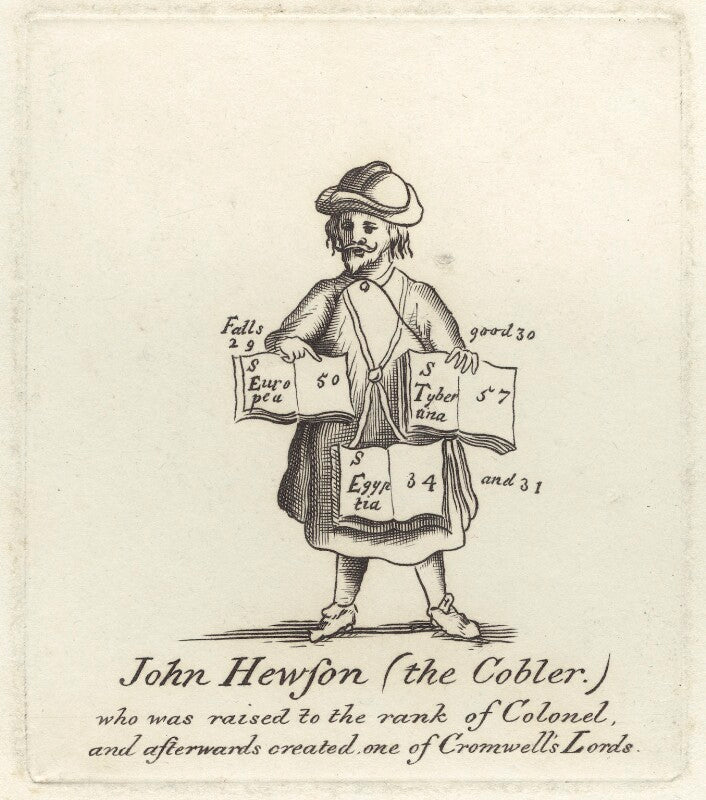 Falls
29
good 30
S
Euro
pea
50
S
Tyber
tina
57
S
Egyp
tia
34
and 31
John Hewſon (the Cobler.)
who was raised to the rank of Colonel,
and afterwards created one of Cromwell's Lords.